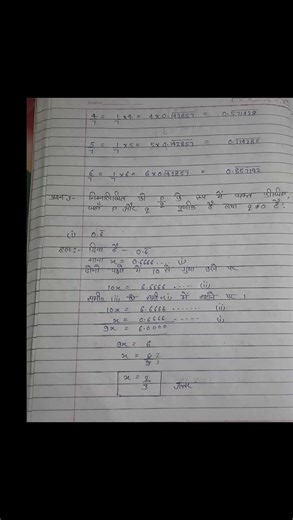 4/7 = 1/7 × 4 = 4 × 0.142857 = 0.571428
5/7 = 1/7 × 5 = 5 × 0.142857 = 0.714285
6/7 = 1/7 × 6 = 6 × 0.142857 = 0.857142
निम्नलिखित को p/q के रूप में व्यक्त कीजिए,
जहाँ p और q पूर्णांक हैं तथा q ≠ 0 है:
(i) 0.6̄
हल:- दिया है - 0.6̄
माना x = 0.6666 .. (i)
दोनों पक्षों में 10 से गुणा करने पर
10x = 6.6666 ...... (ii)
समी० (ii) को समी० (i) में घटाने पर।
10x = 6.6666 ....... (ii)
x = 0.6666 ....... (i)
9x = 6.0000
9x = 6
x = 6/9
x = 2/3 उत्तर